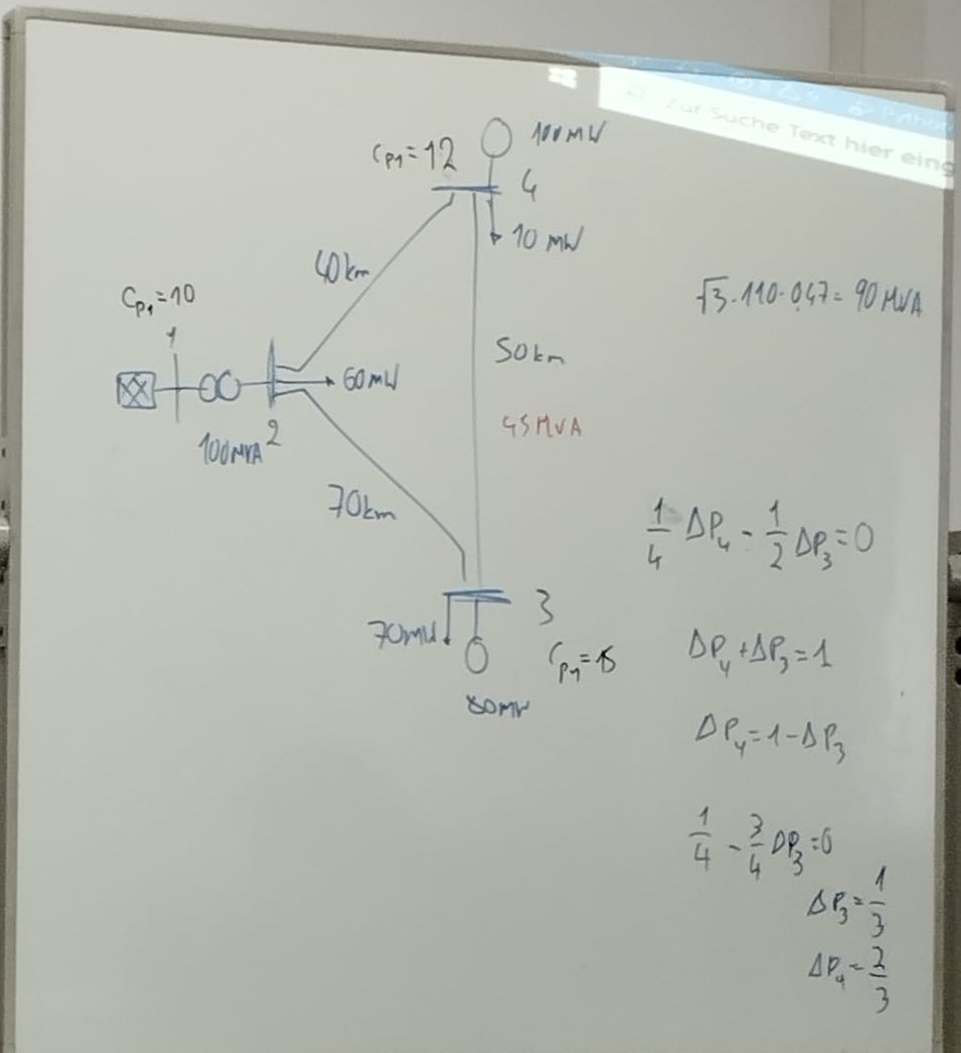 Zur Suche Text hier eing
C_P1=12
100MW
4
10 MW
40km
C_P1=10
1
60MW
100MVA
2
50km
45MVA
70km
70MW
3
C_P1=15
80MW
√3·110·0,47=90MVA
1/4 ΔP_4 - 1/2 ΔP_3=0
ΔP_4+ΔP_3=1
ΔP_4=1-ΔP_3
1/4 - 3/4 ΔP_3=0
ΔP_3=1/3
ΔP_4=2/3